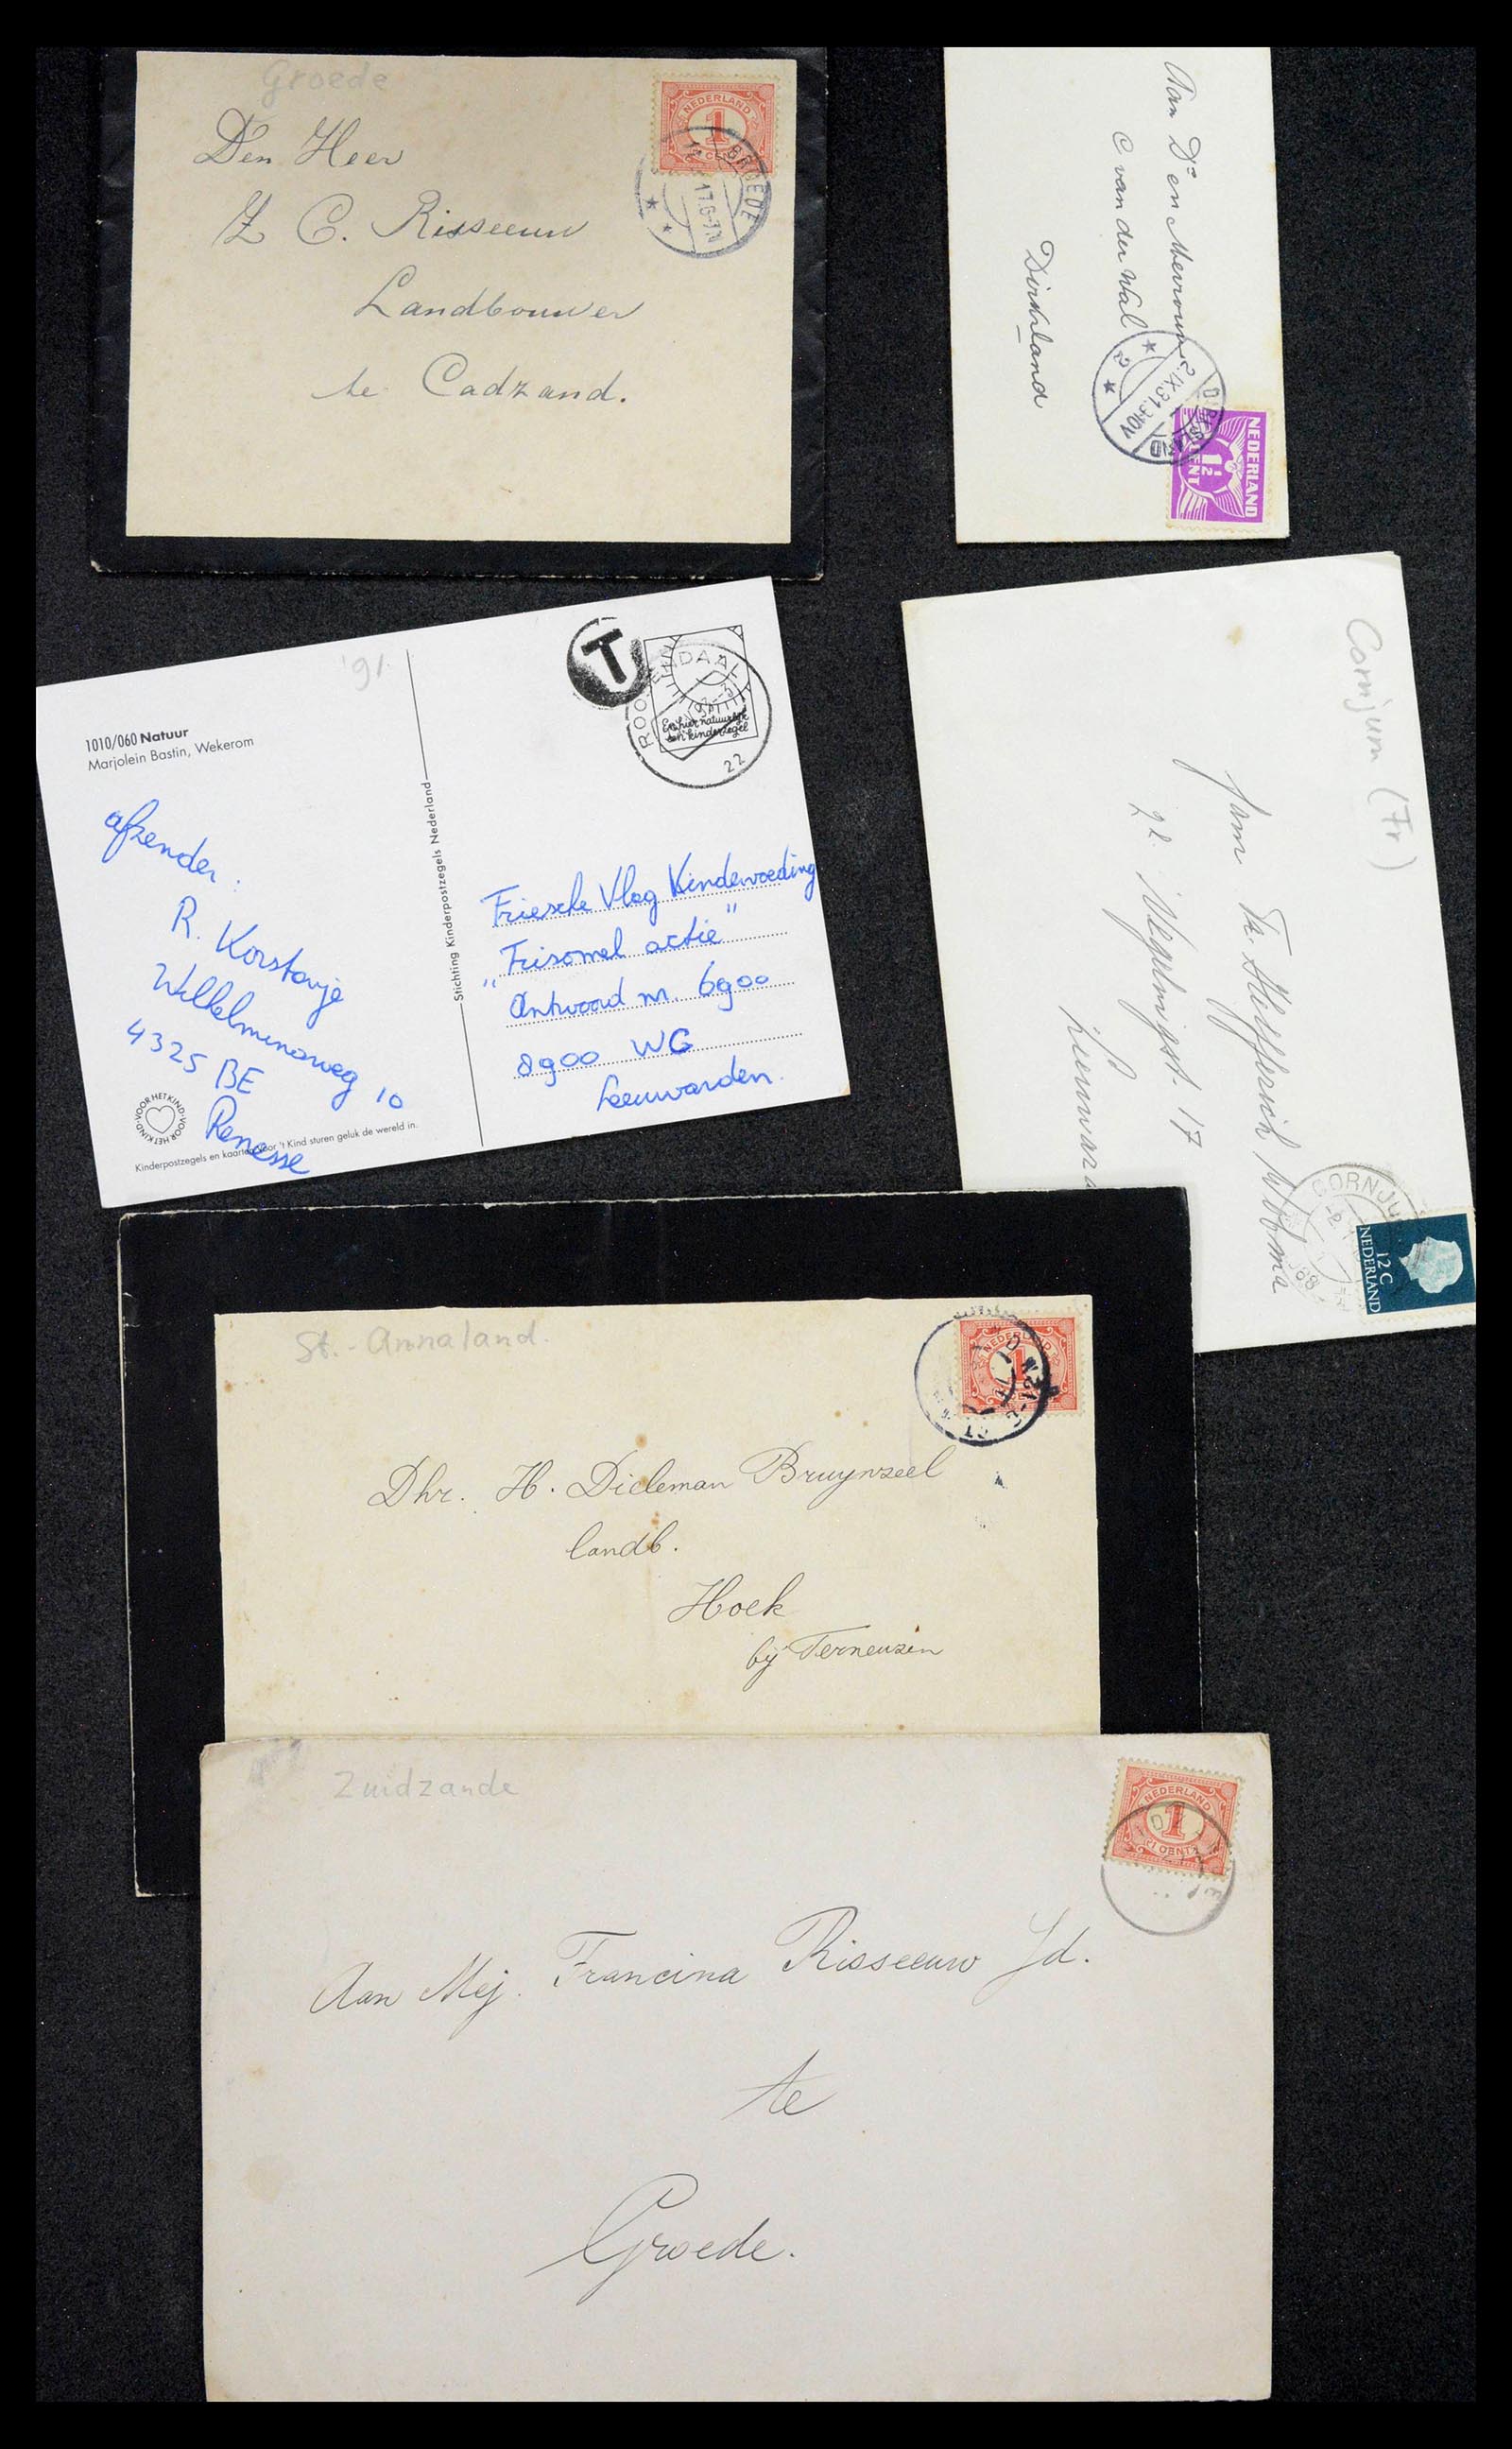 Groede
NEDERLAND
1
GROEDE
Den Heer
Z C. Risseeuw
Landbouwer
te Cadzand.
Aan Ds en Mevrouw
C van der Wal
Dirksland
2.IX.31.3-10V
DIRKSLAND
NEDERLAND
1½
CENT
'91.
1010/060 Natuur
Marjolein Bastin, Wekerom
T
ROOSENDAAL
En hier natuurlijk
een kinderzegel
22
afzender:
R. Korstanje
Wilhelminaweg 10
4325 BE
Renesse
VOOR HET KIND·VOOR HET KIND
Kinderpostzegels en kaarten voor 't Kind sturen geluk de wereld in.
Stichting Kinderpostzegels Nederland
Friesche Vlag Kindervoeding
"Frisomel actie"
Antwoord nr. 6900
8900 WG
Leeuwarden.
Cornjum (Fr)
Fam
17
CORNJU
68
12 C
NEDERLAND
St.-Annaland.
NEDERLAND
1
Dhr. H. Dieleman Bruynzeel
landb.
Hoek
bij Terneuzen
Zuidzande
NEDERLAND
1
CENT
Aan Mej. Francina Risseeuw Jd.
te
Groede.